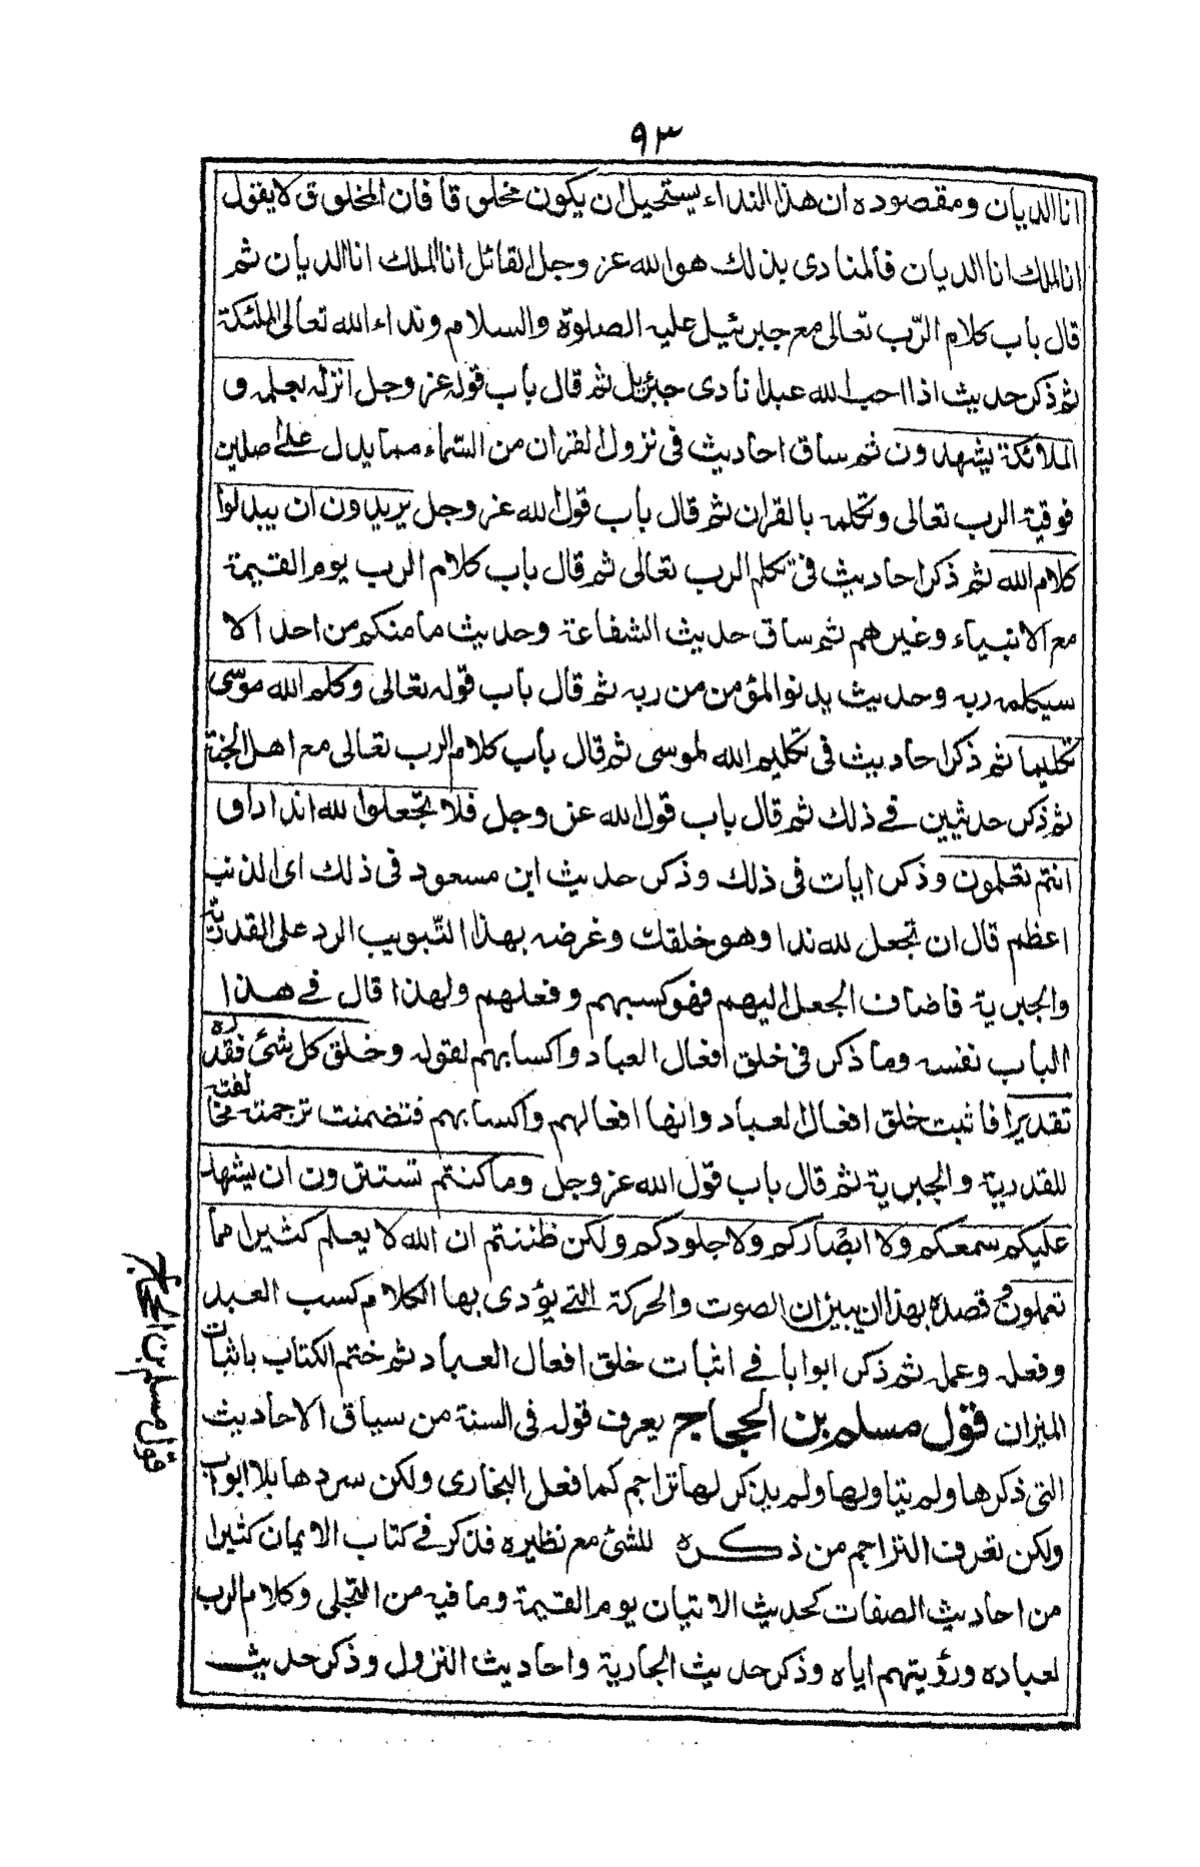 ٩٣
انا الديان ومقصوده ان هذا النداء يستحيل ان يكون مخلوقا فان المخلوق لا يقول
انا الملك انا الديان فالمنادى بذلك هو الله عز وجل القائل انا الملك انا الديان ثم
قال باب كلام الرّب تعالى مع جبرئيل عليه الصلوة والسلام ونداء الله تعالى الملئكة
ثم ذكر حديث اذا احب الله عبدا نادى جبرئيل ثم قال باب قوله عز وجل انزله بعلمه و
الملائكة يشهدون ثم ساق احاديث فى نزول القران من السّماء مما يدل على اصلين
فوقية الرب تعالى وتكلمه بالقران ثم قال باب قول الله عز وجل يريدون ان يبدلوا
كلام الله ثم ذكر احاديث فى تكلم الرب تعالى ثم قال باب كلام الرب يوم القيمة
مع الانبياء وغيرهم ثم ساق حديث الشفاعة وحديث ما منكم من احد الا
سيكلمه ربه وحديث يدنو المؤمن من ربه ثم قال باب قوله تعالى وكلم الله موسى
تكليما ثم ذكر احاديث فى تكليم الله لموسى ثم قال باب كلام الرب تعالى مع اهل الجنة
ثم ذكر حديثين فى ذلك ثم قال باب قول الله عز وجل فلا تجعلوا لله اندادا و
انتم تعلمون وذكر ايات فى ذلك وذكر حديث ابن مسعود فى ذلك اى الذنب
اعظم قال ان تجعل لله ندا وهو خلقك وغرضه بهذا التّبويب الرد على القدرية
والجبرية فاضاف الجعل اليهم فهو كسبهم وفعلهم ولهذا قال فى هذا
الباب نفسه وما ذكر فى خلق افعال العباد واكسابهم لقوله وخلق كل شئ فقدره
تقديرا فاثبت خلق افعال العباد وانها افعالهم واكسابهم فتضمنت ترجمته مخالفته
للقدرية والجبرية ثم قال باب قول الله عز وجل وما كنتم تستترون ان يشهد
عليكم سمعكم ولا ابصاركم ولا جلودكم ولكن ظننتم ان الله لا يعلم كثيرا مما
تعملون وقصده بهذا ان يبين ان الصوت والحركة التى يؤدى بها الكلام كسب العبد
وفعله وعمله ثم ذكر ابوابا فى اثبات خلق افعال العباد ثم ختم الكتاب باثبات
الميزان قول مسلم بن الحجاج يعرف قوله فى السنة من سياق الاحاديث
التى ذكرها ولم يتاولها ولم يذكر لها تراجم كما فعل البخارى ولكن سردها بلا ابواب
ولكن تعرف التراجم من ذكره للشئ مع نظيره فذكر فى كتاب الايمان كثيرا
من احاديث الصفات كحديث الاتيان يوم القيمة وما فيه من التجلى وكلام الرب
لعباده ورؤيتهم اياه وذكر حديث الجارية واحاديث النزول وذكر حديث
قول مسلم بن الحجاج